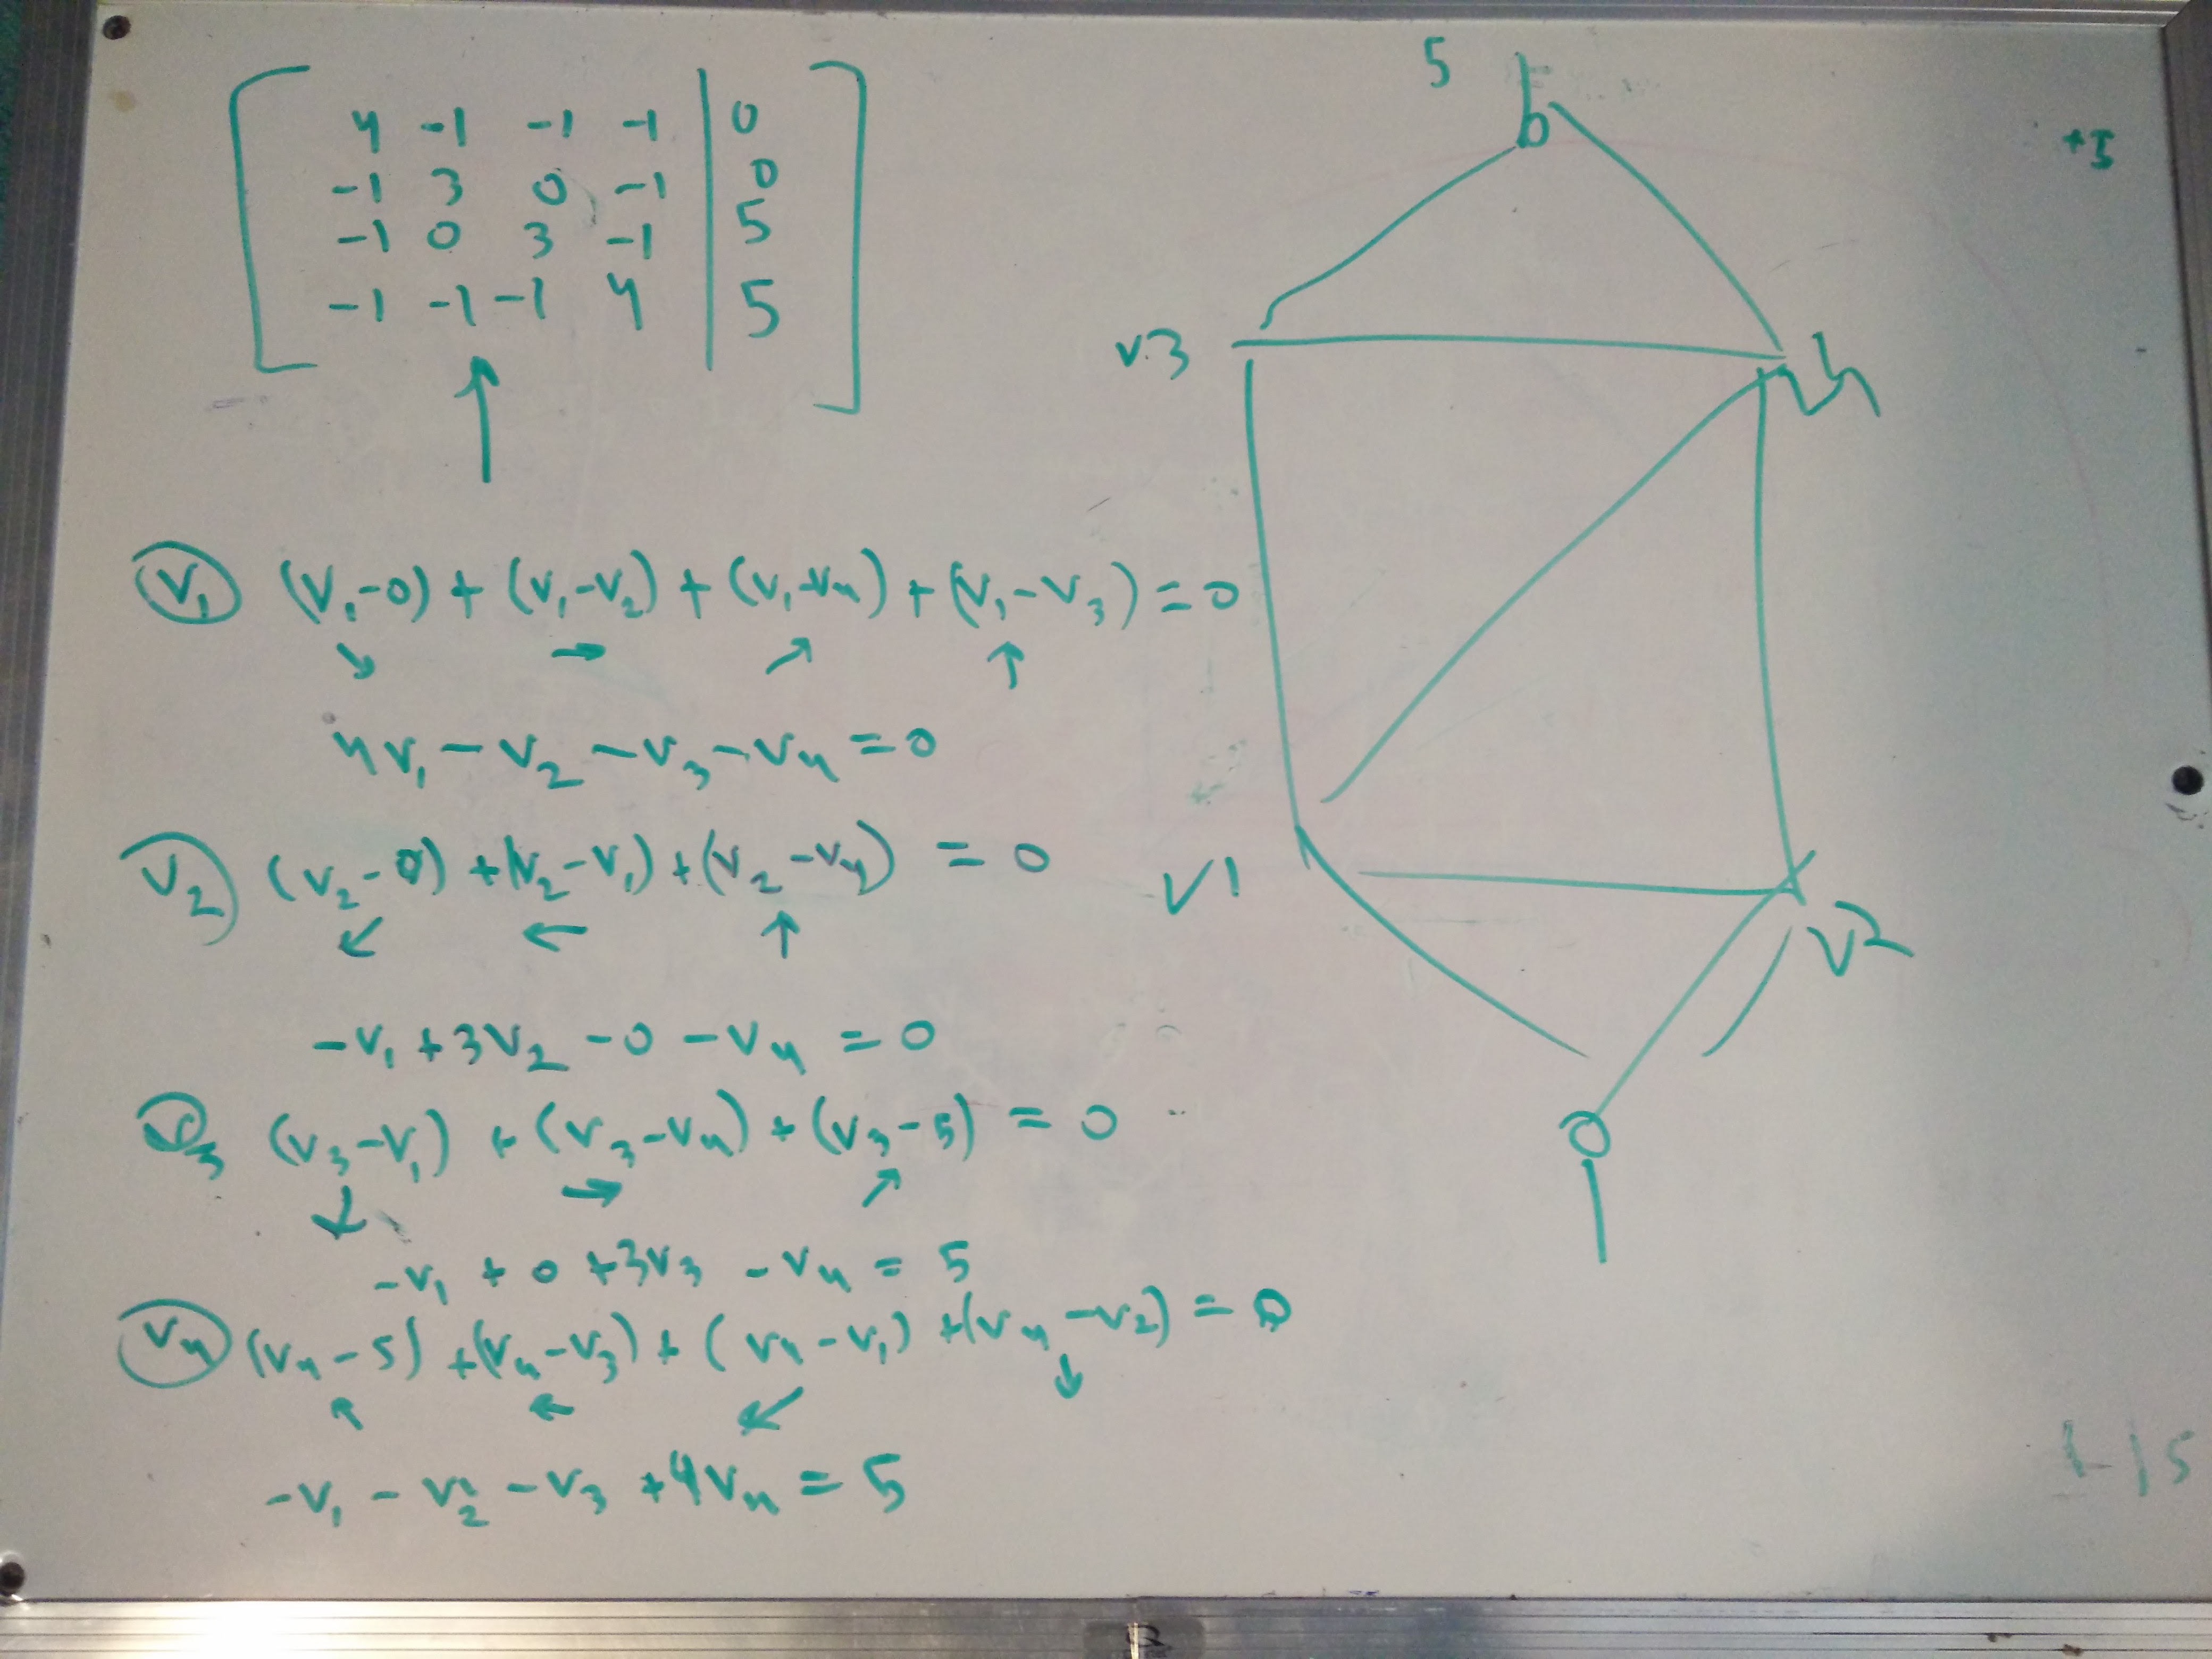 4 -1 -1 -1 | 0
-1 3 0 -1 | 0
-1 0 3 -1 | 5
-1 -1 -1 4 | 5
↑
V₁ (V₁-0) + (V₁-V₂) + (V₁-V₄) + (V₁-V₃) = 0
↘ → ↗ ↑
4V₁ - V₂ - V₃ - V₄ = 0
V₂ (V₂-0) + (V₂-V₁) + (V₂-V₄) = 0
↙ ← ↑
-V₁ + 3V₂ - 0 - V₄ = 0
V₃ (V₃-V₁) + (V₃-V₄) + (V₃-5) = 0
↓ → ↗
-V₁ + 0 + 3V₃ - V₄ = 5
V₄ (V₄-5) + (V₄-V₃) + (V₄-V₁) + (V₄-V₂) = 0
↖ ← ↙ ↓
-V₁ - V₂ - V₃ + 4V₄ = 5
5
+5
V3
V4
V1
V2